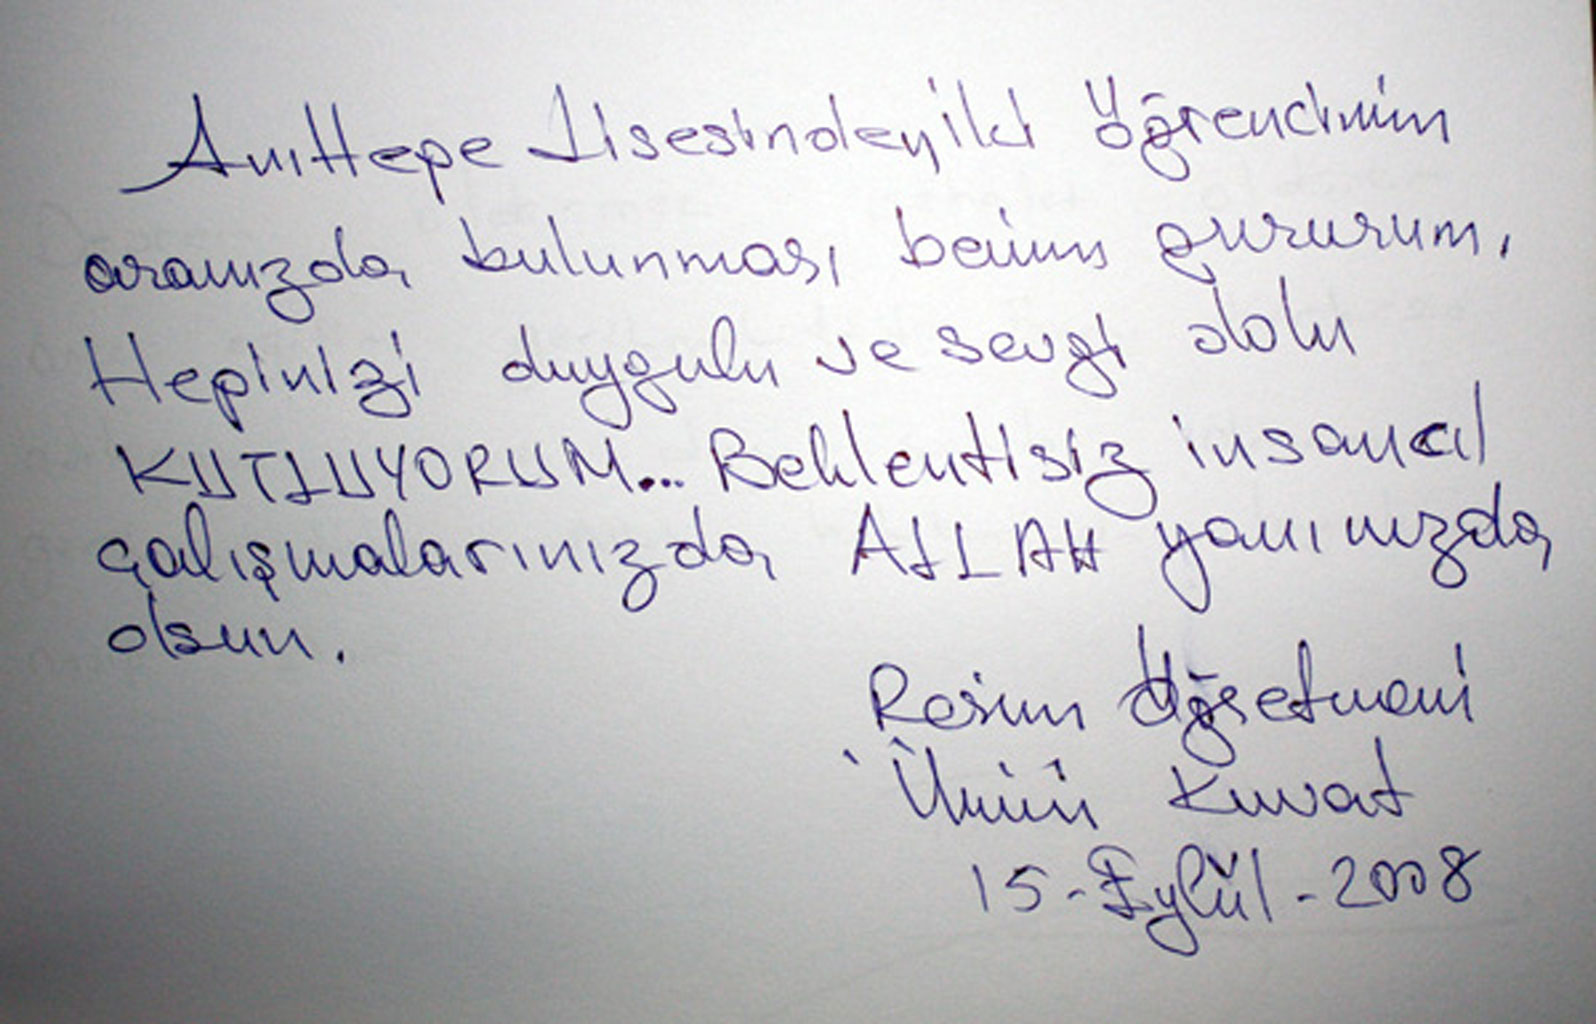 Anıttepe Lisesindeyiki öğrencimin
aranızda bulunması benim gururum,
Hepinizi duygulu ve sevgi dolu
KUTLUYORUM... Beklentisiz insancıl
çalışmalarınızda ALLAH yanınızda
olsun.
Resim Öğretmeni
Kuvat
15-Eylül-2008